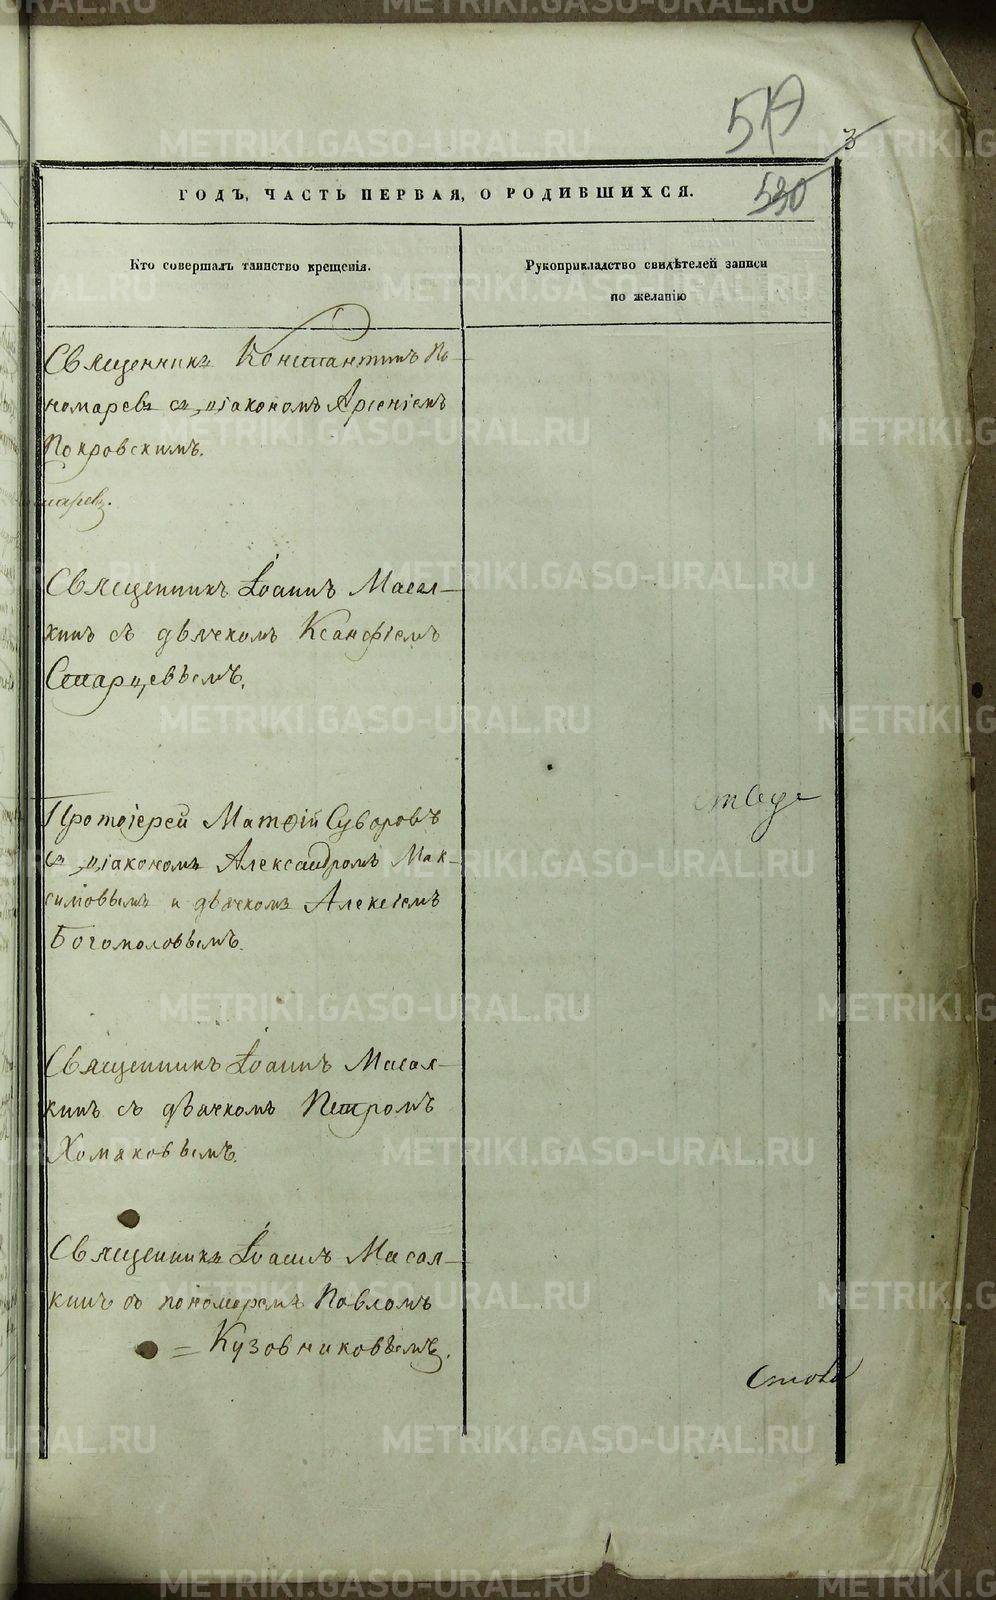 517
3
530
ГОДЪ, ЧАСТЬ ПЕРВАЯ, О РОДИВШИХСЯ.
Кто совершалъ таинство крещенія.
Рукоприкладство свидѣтелей записи
по желанію
Священникъ Константинъ По-
номаревъ съ діакономъ Арсеніемъ
Покровскимъ.
Священникъ Іоаннъ Масал-
кинъ съ дьячкомъ Ксанфіемъ
Старцевымъ.
Протоіерей Матѳій Суворовъ
съ діакономъ Александромъ Мак-
симовымъ и дьячкомъ Алексіемъ
Богомоловымъ.
Священникъ Іоаннъ Масал-
кинъ съ дьячкомъ Петромъ
Хомяковымъ.
Священникъ Іоаннъ Масал-
кинъ съ пономаремъ Павломъ
= Кузовниковымъ.
METRIKI.GASO-URAL.RU